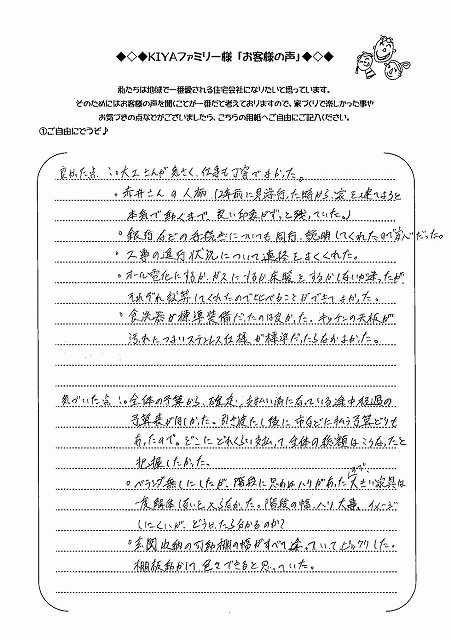 ◆◇◆KIYAファミリー様「お客様の声」◆◇◆
私たちは地域で一番愛される住宅会社になりたいと思っています。
そのためにはお客様の声を聞くことが一番だと考えておりますので、家づくりで楽しかった事や
お気づきの点などがございましたら、こちらの用紙へご自由にご記入ください。
①ご自由にどうぞ♪
良かった点 ：○大工さんが気さく、仕事も丁寧でよかった。
○赤井さんの人柄(2年前に見学行った時から、家を建てようと
本気で動くまで、良い印象がずっと残っていた。)
○銀行などの手続きについても同行、説明してくれたので安心だった。
○工事の進行状況について連絡をよくくれた。
○オール電化にするか、ガスにするか、床暖をするかしないか迷ったが、
それぞれ試算してくれたので比べることができてよかった。
○食洗器が標準装備だったのは良かった。キッチンの天板が
汚れにつよいステンレス仕様が標準だったらなおよかった。
気づいた点：○全体の予算から、確定、支払い済になっている途中経過の
予算表がほしかった。引き渡した後に市などに払う予算どりも
あったので。どこにどれくらい支払って全体の総額はこうなったと
把握したかった。
○ベランダ無しにしたが、階段に思わぬハリがあったので、大きい家具は
一度解体しないと入らなかった。階段の幅、ハリ大事。イメージ
しにくいが、どうしたら分かるのか？
○玄関収納の可動棚の幅がすべて違っていてビックリした。
棚板動かして色々できると思っていた。